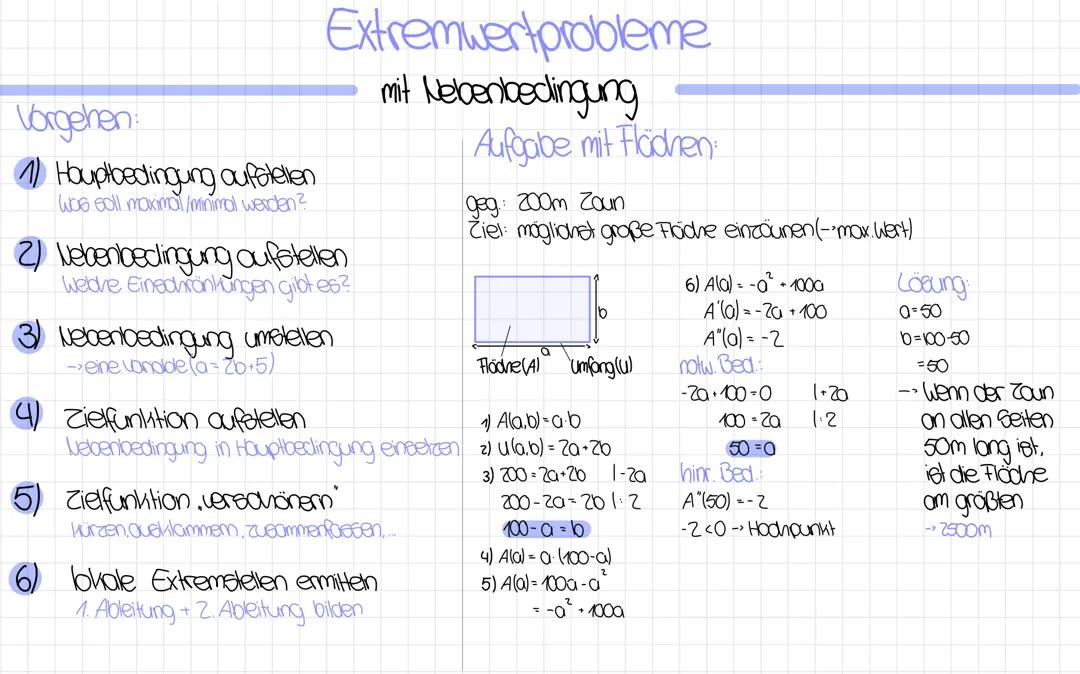 Extremwertprobleme
mit Nebenbedingung
Vorgehen:
1) Hauptbedingung aufstellen
Was soll maximal/minimal werden?
2) Nebenbedingung aufstellen
Welche Einschränkungen gibt es?
3) Nebenbedingung umstellen
→ eine Variable (a = 2b+5)
4) Zielfunktion aufstellen
Nebenbedingung in Hauptbedingung einsetzen
5) Zielfunktion „verschönern"
kürzen, ausklammern, zusammenfassen,...
6) lokale Extremstellen ermitteln
1. Ableitung + 2. Ableitung bilden
Aufgabe mit Flächen:
geg.: 200m Zaun
Ziel: möglichst große Fläche einzäunen (→ max. Wert)
b
a
Fläche (A) Umfang (U)
1) A(a,b) = a·b
2) U(a,b) = 2a+2b
3) 200 = 2a+2b |-2a
200-2a = 2b |:2
100-a = b
4) A(a) = a·(100-a)
5) A(a) = 100a-a²
= -a² + 100a
6) A(a) = -a² + 100a
A'(a) = -2a + 100
A"(a) = -2
notw. Bed.:
-2a+100=0 |+2a
100=2a |:2
50=a
hinr. Bed.:
A"(50) = -2
-2<0 → Hochpunkt
Lösung:
a=50
b=100-50
=50
→ Wenn der Zaun
an allen Seiten
50m lang ist,
ist die Fläche
am größten
→ 2500m